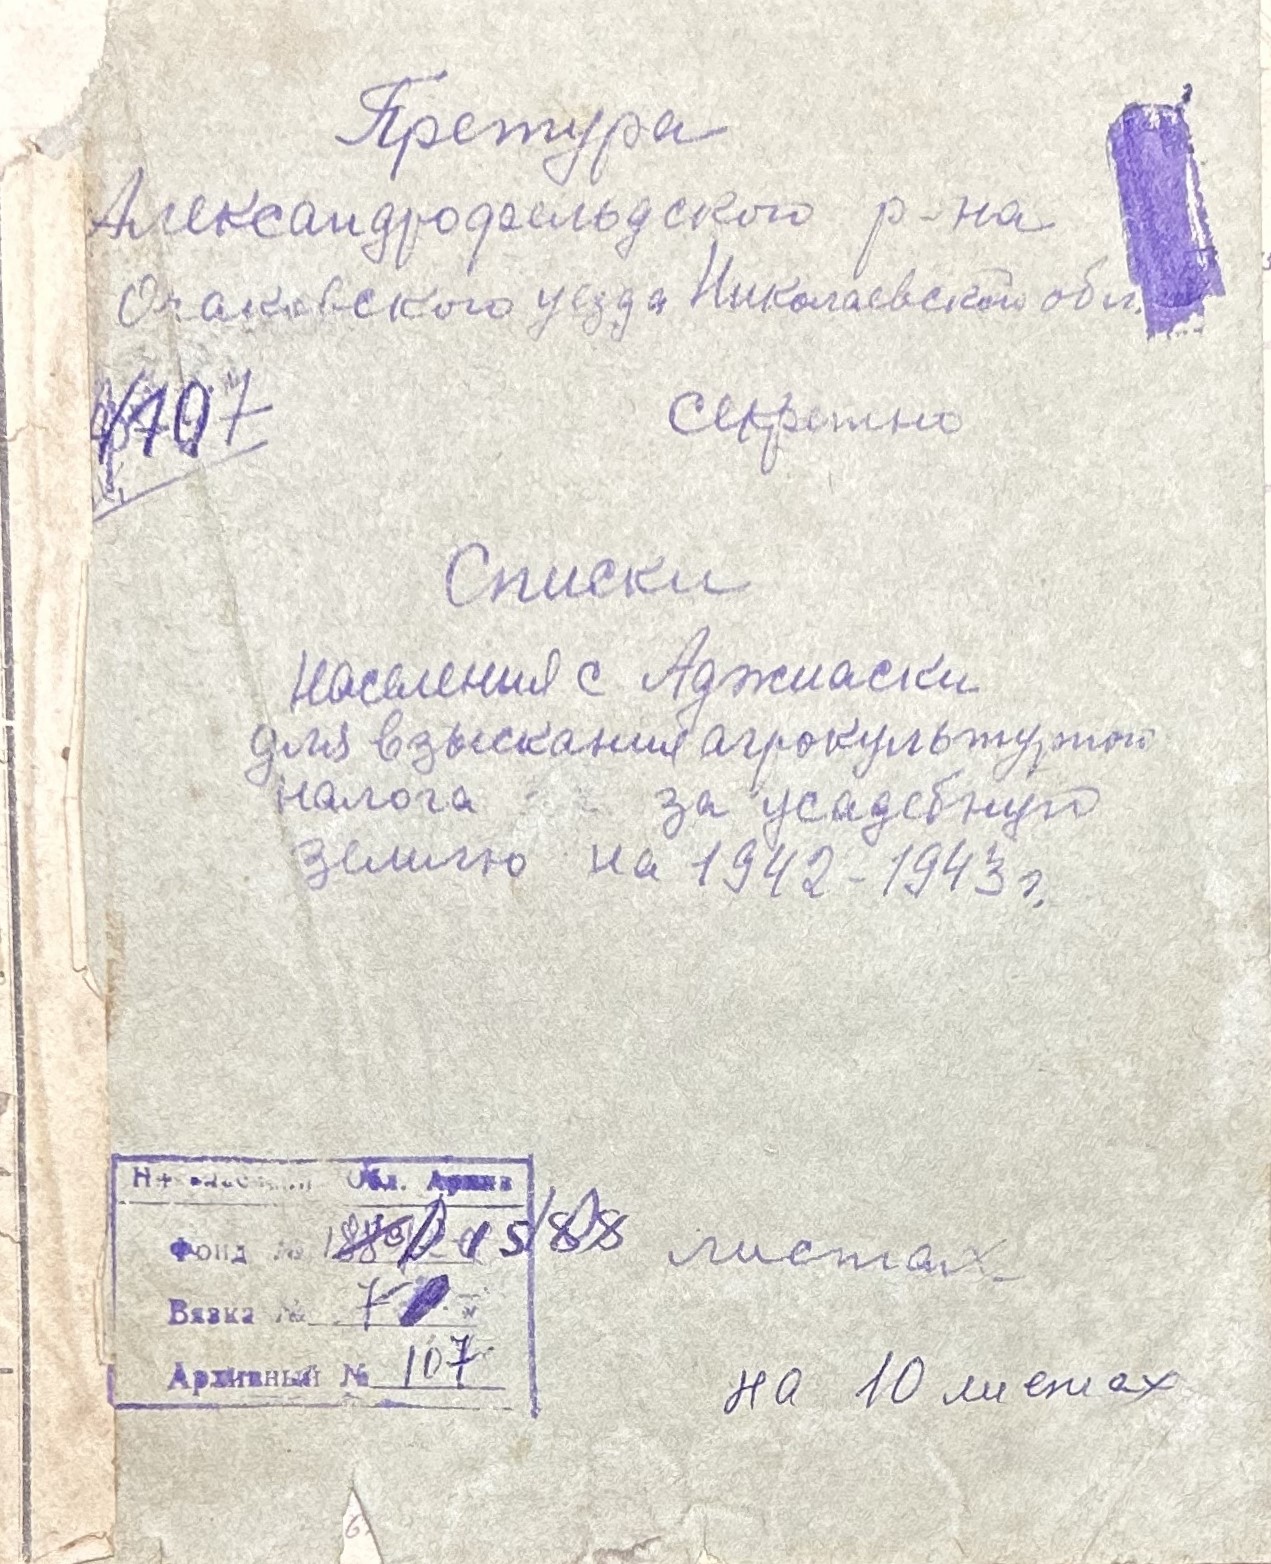 Претура
Александрофельдского р-на
Очаковского уезда Николаевской обл.
107
Секретно
Списки
населения с Аджиаски
для взыскания агрокультурного
налога за усадебную
землю на 1942-1943 г.
Обл. Архив
Фонд № 15/88 листах
Вязка № 7
Архивный № 107
на 10 листах
6